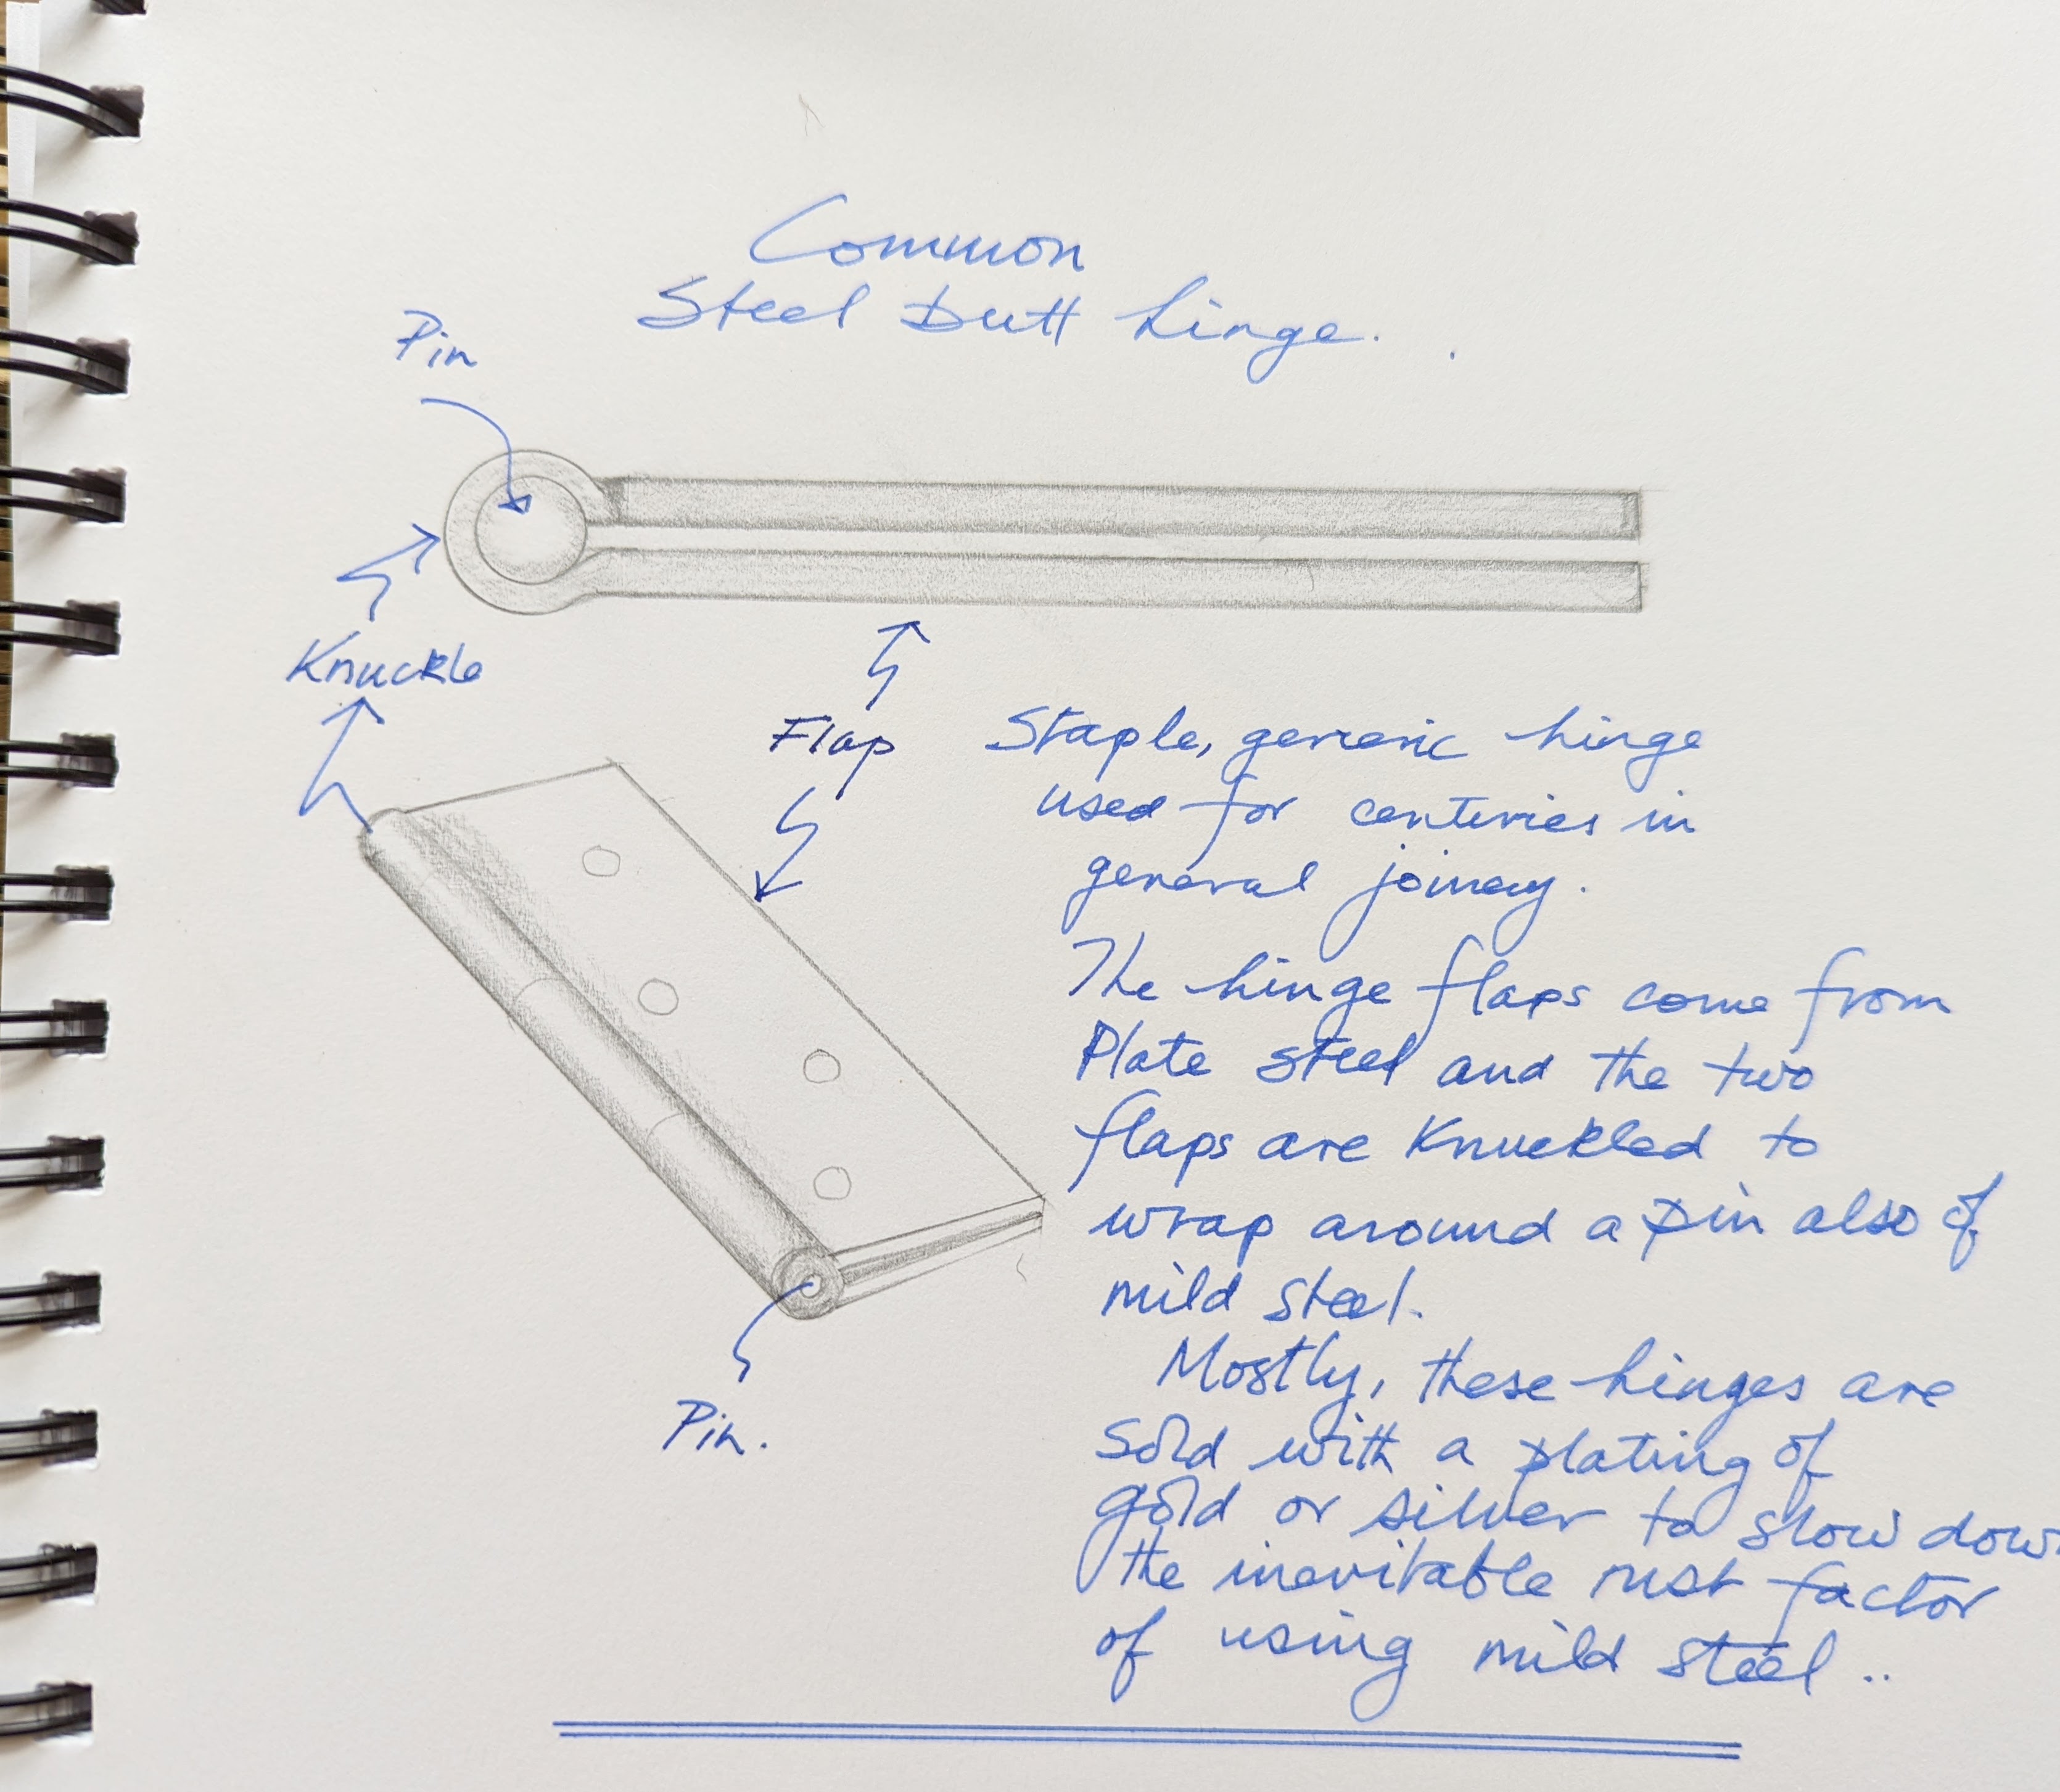 Common
Steel Butt hinge.
Pin
Knuckle
Flap
Staple, generic hinge
used for centuries in
general joinery.
The hinge flaps come from
Plate steel and the two
flaps are Knuckled to
wrap around a pin also of
mild steel.
Mostly, these hinges are
sold with a plating of
gold or silver to slow down
the inevitable rust factor
of using mild steel..
Pin.